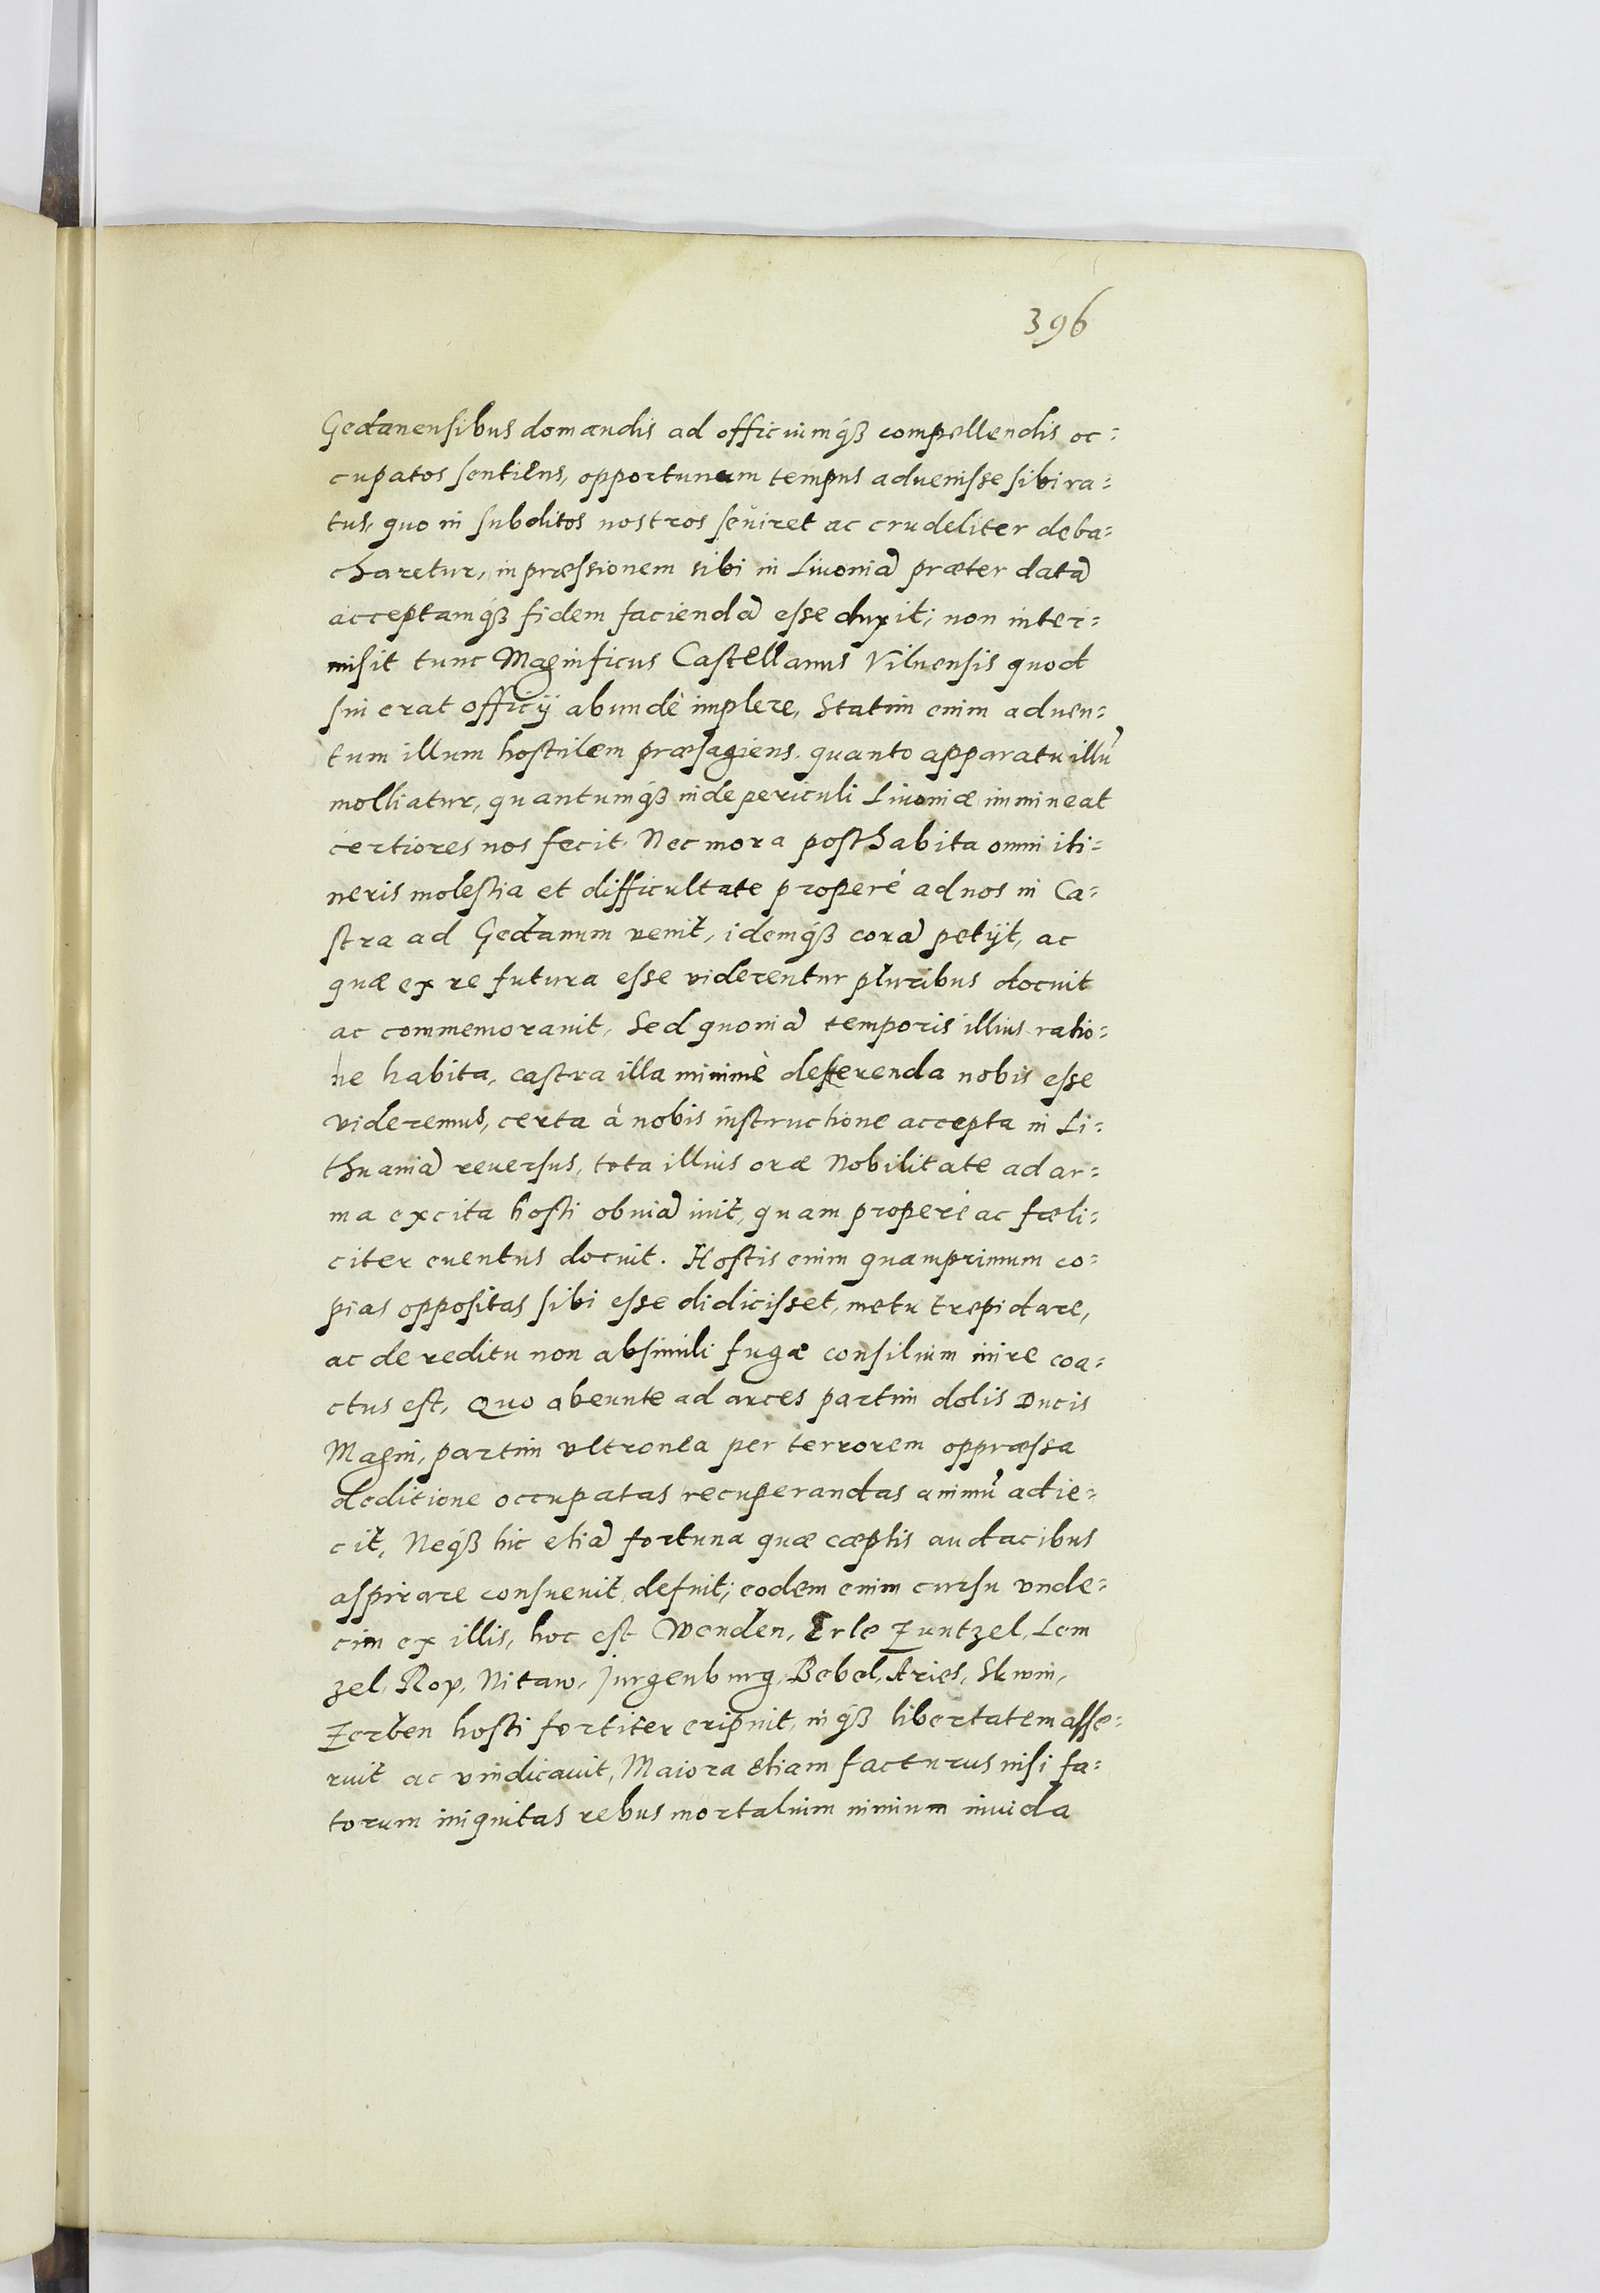 396
Gedanensibus domandis ad officiumq́ꝫ compellendis oc=
cupatos sentiens, opportunum tempus aduenisse sibi ra=
tus, quo in subditos nostros seuiret ac crudeliter deba=
charetur, inpræssionem sibi in Liuoniã præter datã
acceptamq́ꝫ fidem faciendã esse duxit; non inter=
misit tunc Magnificus Castellanus Vilnensis quod
sui erat officij abundè implere, Statim enim aduen=
tum illum hostilem præsagiens, quanto apparatu illũ
molliatur, quantumq́ꝫ inde periculi Liuoniæ immineat
certiores nos fecit. Nec mora posthabita omni iti=
neris molestia et difficultate properè ad nos in Ca=
stra ad Gedanum venit, idemq́ꝫ corã petijt, ac
quæ ex re futura esse viderentur pluribus docuit
ac commemorauit, Sed quoniã temporis illius ratio=
ne habita, castra illa minimè deserenda nobis esse
videremus, certa à nobis instructione accepta in Li=
thuaniã reuersus, tota illius oræ Nobilitate ad ar=
ma excita hosti obuiã iuit, quam properè ac fœli=
citer euentus docuit. Hostis enim quamprimum co=
pias oppositas sibi esse didicisset, metu trepidare,
ac de reditu non absimili fugæ consilium inire coa=
ctus est, Quo abeunte ad arces partim dolis Ducis
Magni, partim vltronea per terrorem oppræssa
deditione occupatas recuperandas animũ adie=
cit, Neq́ꝫ hic etiã fortuna quæ cœptis audacibus
aspirare consueuit, defuit; eodem enim cursu vnde=
cim ex illis, hoc est Wenden, Erle Zuntzel, Lem
zel, Rop, Nitaw, Jurgenburg, Bebel, Aries, Skwin,
Zerben hosti fortiter eripuit, inq́ꝫ libertatem asse=
ruit ac vindicauit, Maiora etiam facturus nisi fa=
torum iniquitas rebus mortalium nimium inuida